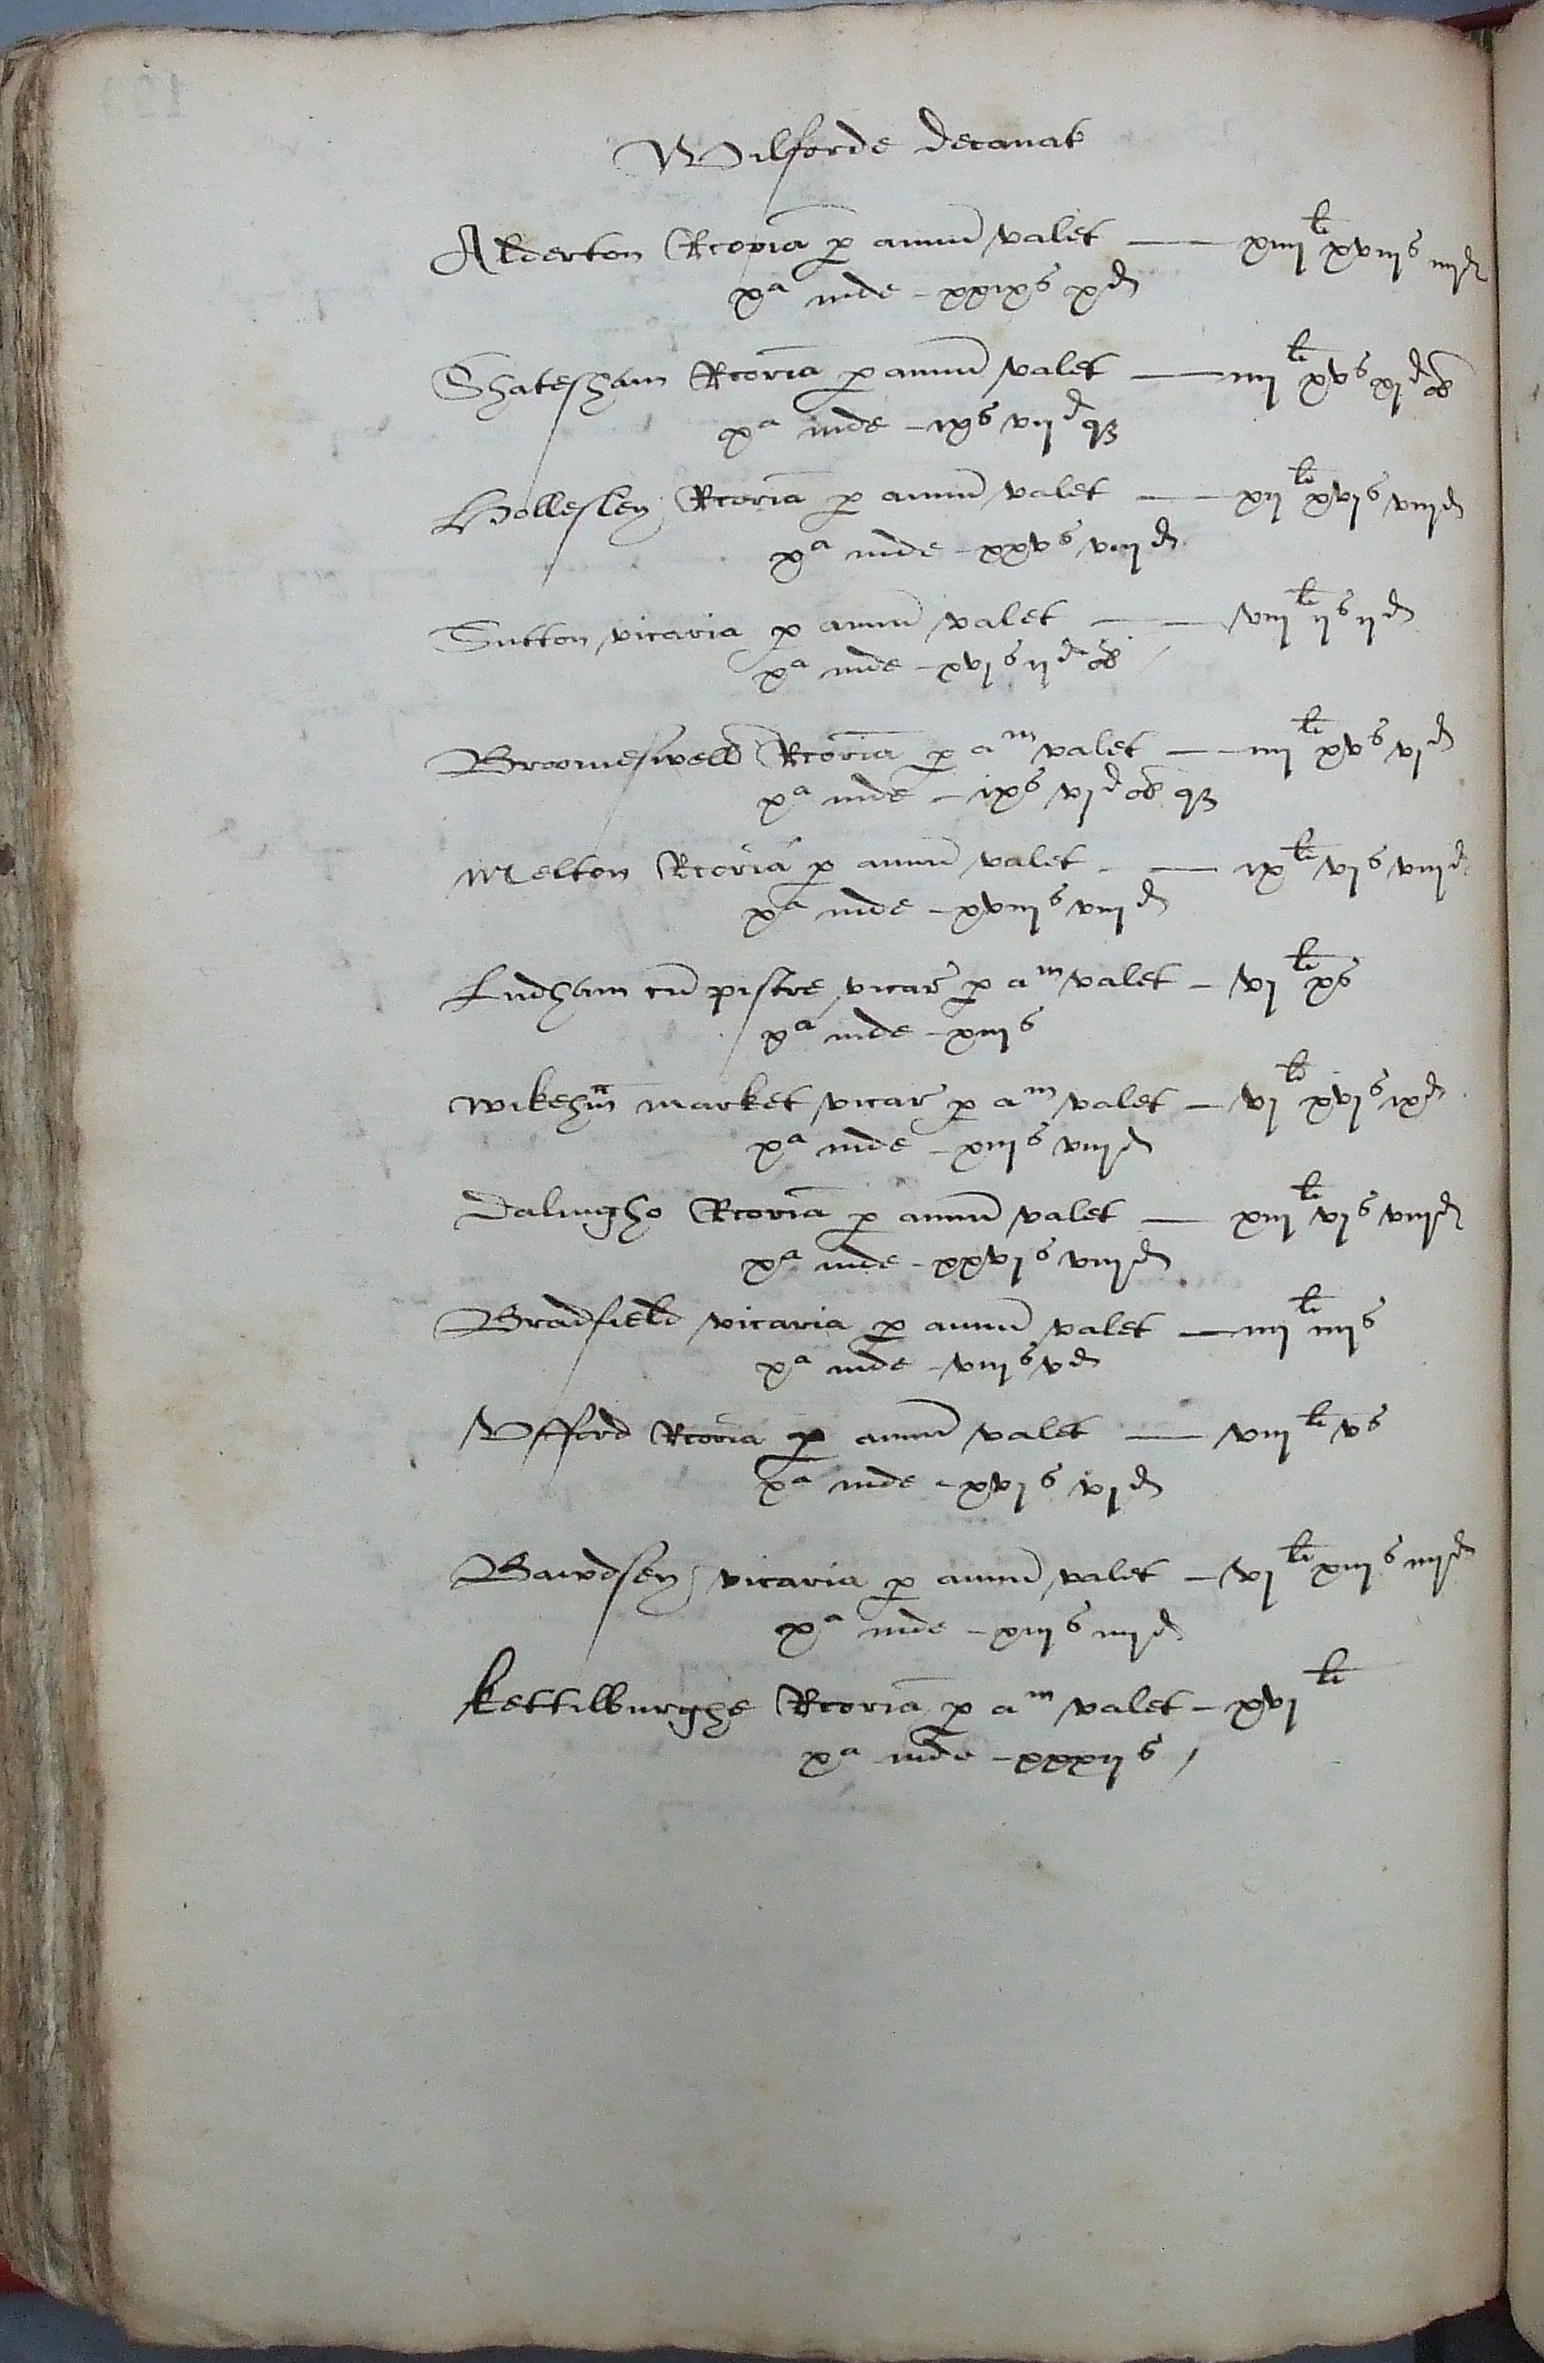 Wilforde decanat
Alderton Rcoria p annu valet — xiiij li xviijs iiijd
xa inde - xxixs xd
Shatesham Rcoria p annu valet — iiij li xvs xjd ob
xa inde - ixs vijd qz
Hollesley Rcoria p annu valet — xij li xvjs viijd
xa inde - xxvs viijd
Sutton vicaria p annu valet — viij li ijs ijd
xa inde - xvjs ijd ob
Broomeswell Rcoria p am valet — iiij li xvs vjd
xa inde - ixs vjd ob qz
Melton Rcoria p annu valet — ix li vjs viijd
xa inde - xviijs viijd
Ludham cu pistre vicar p am valet - vj li xs
xa inde - xiijs
wikehm market vicar p am valet - vj li xvjs ixd
xa inde - xiijs viijd
Dalingho Rcoria p annu valet — xiij li vjs viijd
xa inde - xxvjs viijd
Bradfield vicaria p annu valet — iiij li iiijs
xa inde - viijs vd
Vfford Rcoria p annu valet — viij li vs
xa inde - xvjs vjd
Bawdsey vicaria p annu valet - vj li xiijs iiijd
xa inde - xiijs iiijd
kettilburghe Rcoria p am valet - xvj li
xa inde - xxxijs